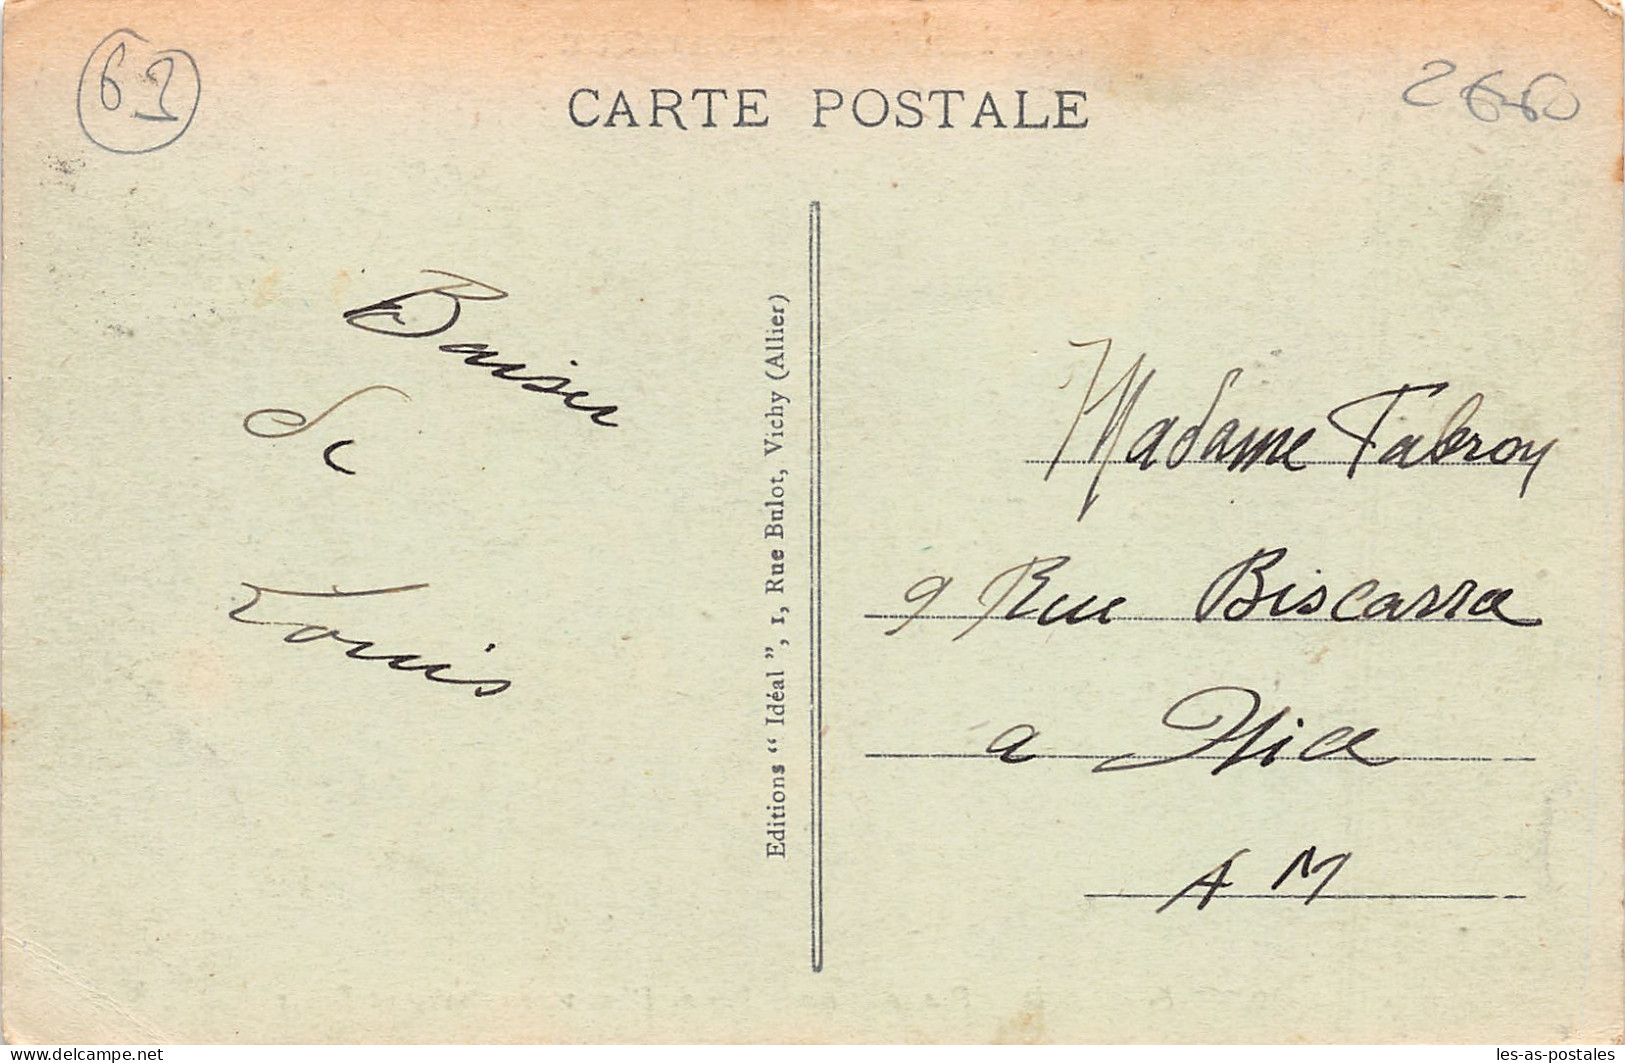 63
2660
CARTE POSTALE
Baiser
de
Louis
Editions “ Idéal ”, 1, Rue Bulot, Vichy (Allier)
Madame Fabron
9 Rue Biscarra
a Nice
A M
delcampe.net
les-as-postales